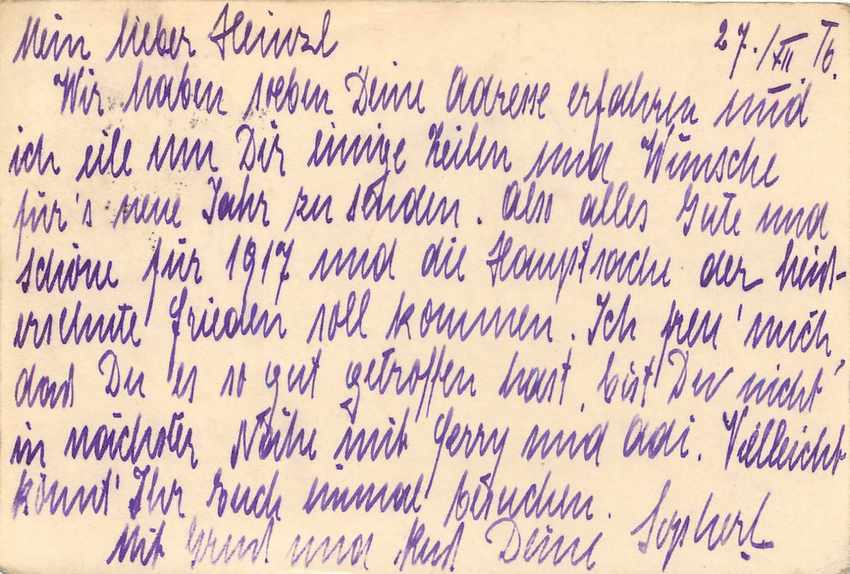 Mein lieber Heinzl 27./XII 16.
Wir haben soeben Deine Adresse erfahren und
ich eile um Dir einige Zeilen und Wünsche
für's neue Jahr zu senden. Also alles Gute und
schöne für 1917 und die Hauptsache der heiß-
ersehnte Frieden soll kommen. Ich freu' mich,
dass Du es so gut getroffen hast, bist Du nicht
in nächster Nähe mit Gerry und Adi. Vielleicht
könnt' Ihr Euch einmal besuchen.
Mit Gruß und Kuß Deine Sopherl